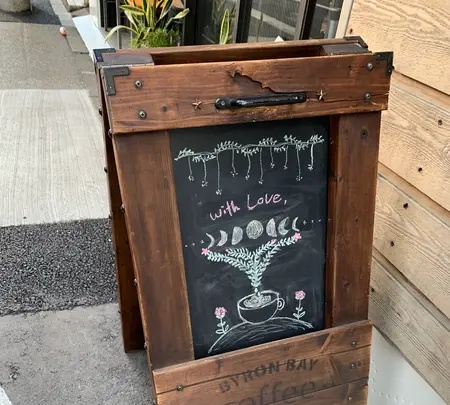 with Love,
BYRON BAY
coffee